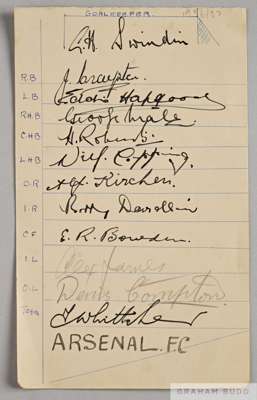 GOALKEEPER. 1936/37
G.H. Swindin
R.B J. Crayston.
L.B Eddie Hapgood
R.H.B George Male.
C.H.B H. Roberts.
L.H.B Wilf. Copping.
O.R Alf. Kirchen.
I.R Bobby Davidson
C.F E. R. Bowden.
I.L Alex James
O.L Denis Compton.
T Whittaker
ARSENAL. F.C
GRAHAM BUDD